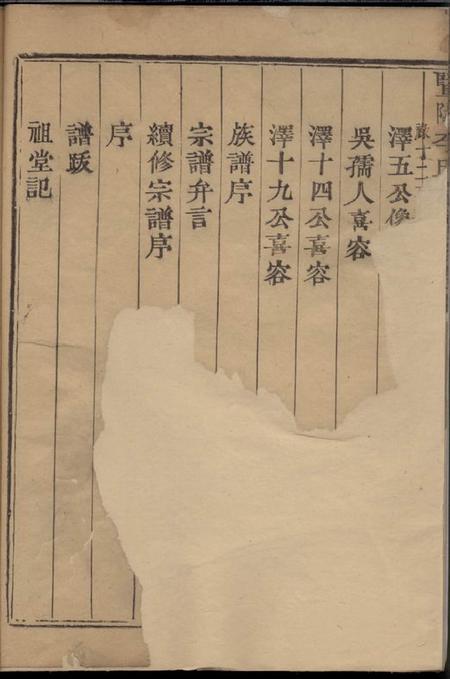 暨陽李氏
澤五公像
吳孺人喜容
澤十四公喜容
澤十九公喜容
族譜序
宗譜弁言
續修宗譜序
序
譜跋
祖堂記